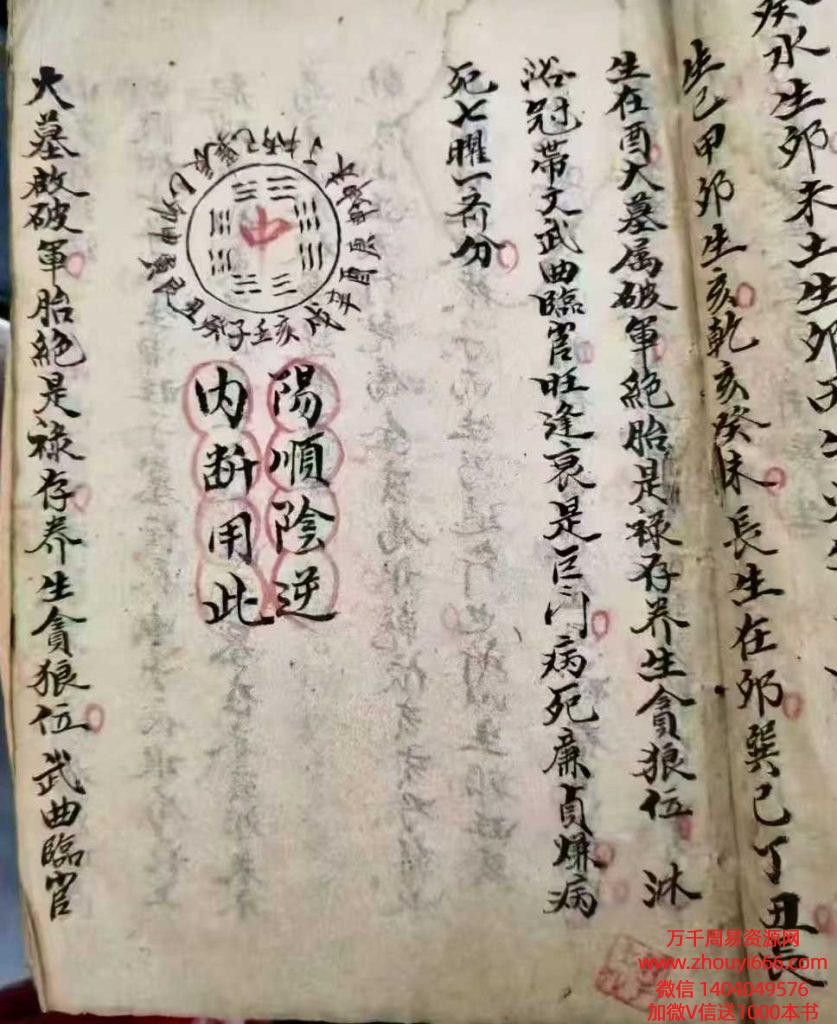 癸水生卯未土生卯
生己甲卯生亥乾亥癸未長生在卯巽已丁丑長
生在酉大墓属破軍絕胎是禄存养生貪狼位 沐
浴冠帶文武曲臨官旺逢衰是巨门病死廉貞嫌病
死七曜一齐分
中
丑癸子壬亥戌辛酉
陽順陰逆
内断用此
大墓破軍胎絕是禄存养生貪狼位 武曲臨官
万千周易资源网
www.zhouyi666.com
微信 1404049576
加微V信送1000本书